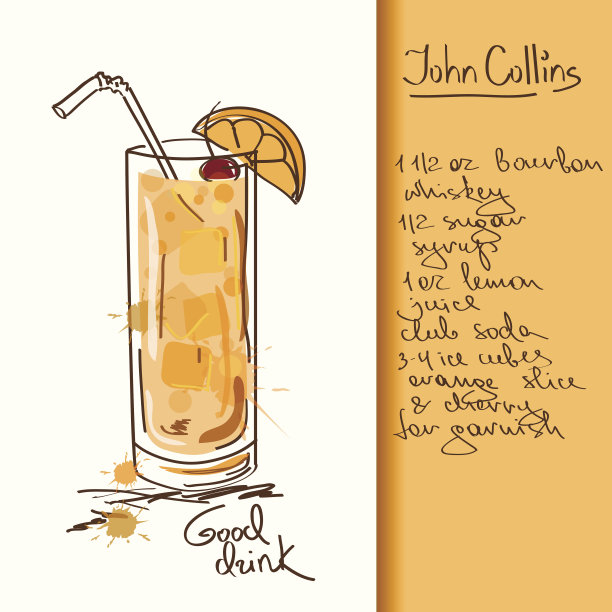 John Collins
1 1/2 oz Bourbon
whiskey
1/2 sugar
syrup
1 oz lemon
juice
club soda
3-4 ice cubes
orange slice
& cherry
for garnish
Good
drink